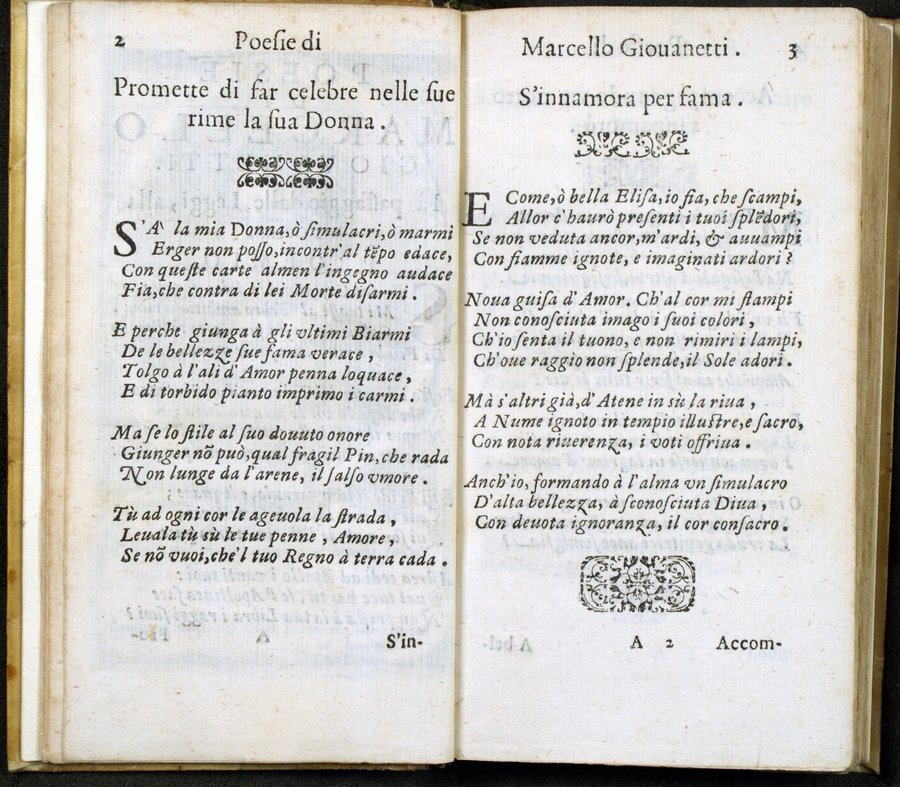 2 Poeſie di
Promette di far celebre nelle ſue
rime la ſua Donna.
S'A' la mia Donna, ò ſimulacri, ò marmi
Erger non poſſo, incontr'al tẽpo edace,
Con queſte carte almen l'ingegno audace
Fia, che contra di lei Morte diſarmi.
E perche giunga à gli vltimi Biarmi
De le bellezze ſue fama verace,
Tolgo à l'ali d'Amor penna loquace,
E di torbido pianto imprimo i carmi.
Ma ſe lo ſtile al ſuo douuto onore
Giunger nõ può, qual fragil Pin, che rada
Non lunge da l'arene, il ſalſo vmore.
Tù ad ogni cor le ageuola la ſtrada,
Leuala tù sù le tue penne, Amore,
Se nõ vuoi, che'l tuo Regno à terra cada.
S'in-
Marcello Giouanetti. 3
S'innamora per fama.
E Come, ò bella Eliſa, io fia, che ſcampi,
Allor c'haurò preſenti i tuoi ſplẽdori,
Se non veduta ancor, m'ardi, & auuampi
Con fiamme ignote, e imaginati ardori?
Noua guiſa d'Amor. Ch'al cor mi ſtampi
Non conoſciuta imago i ſuoi colori,
Ch'io ſenta il tuono, e non rimiri i lampi,
Ch'oue raggio non ſplende, il Sole adori.
Mà s'altri già, d'Atene in sù la riua,
A Nume ignoto in tempio illuſtre, e ſacro,
Con nota riuerenza, i voti offriua.
Anch'io, formando à l'alma vn ſimulacro
D'alta bellezza, à ſconoſciuta Diua,
Con deuota ignoranza, il cor conſacro.
A 2 Accom-